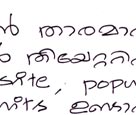 ൻ താരമാ
ം തിയേറ്ററി
site, popu
nits ഉണ്ടാ